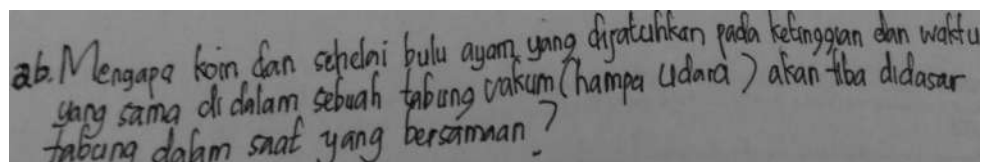 ab. Mengapa koin dan sehelai bulu ayam yang dijatuhkan pada ketinggian dan waktu
yang sama di dalam sebuah tabung vakum (hampa udara) akan tiba didasar
tabung dalam saat yang bersamaan?